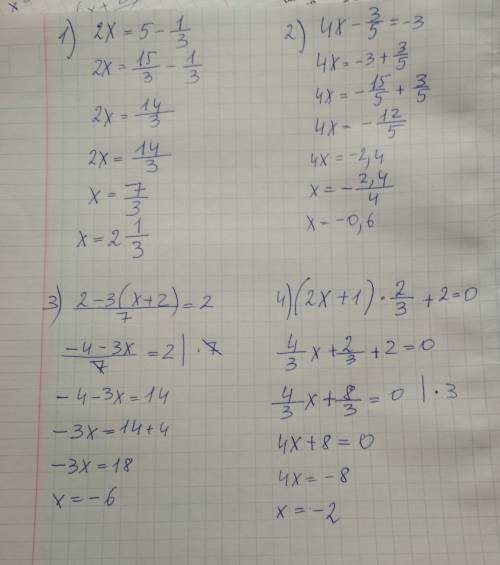 1) 2x = 5 - 1/3
2x = 15/3 - 1/3
2x = 14/3
2x = 14/3
x = 7/3
x = 2 1/3
2) 4x - 3/5 = -3
4x = -3 + 3/5
4x = -15/5 + 3/5
4x = -12/5
4x = -2,4
x = -2,4/4
x = -0,6
3) (2-3(x+2))/7 = 2
(-4-3x)/7 = 2 | ·7
-4-3x = 14
-3x = 14+4
-3x = 18
x = -6
4) (2x+1) · 2/3 + 2 = 0
4/3 x + 2/3 + 2 = 0
4/3 x + 8/3 = 0 | · 3
4x + 8 = 0
4x = -8
x = -2